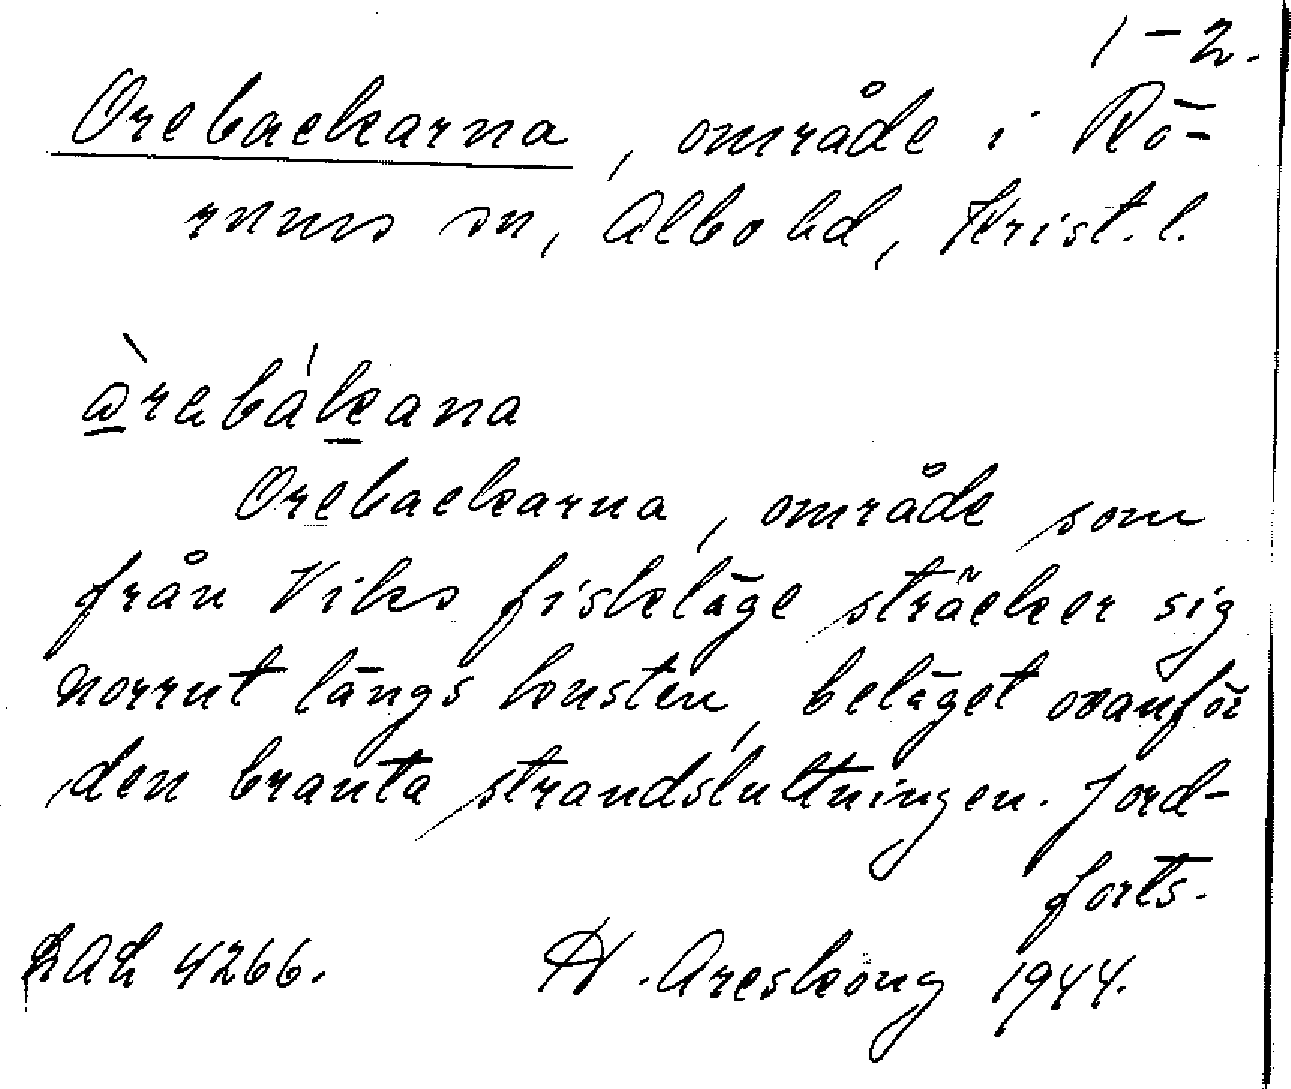 1-2.
Orebackarna, område i Rö-
rums sn, Albo hd, Krist. l.
òrebákana
Orebackarna, område som
från Viks fiskeläge sträcker sig
norrut längs kusten, beläget ovanför
den branta strandsluttningen. Jord-
forts.
LAL 4266. H. Areskoug 1944.